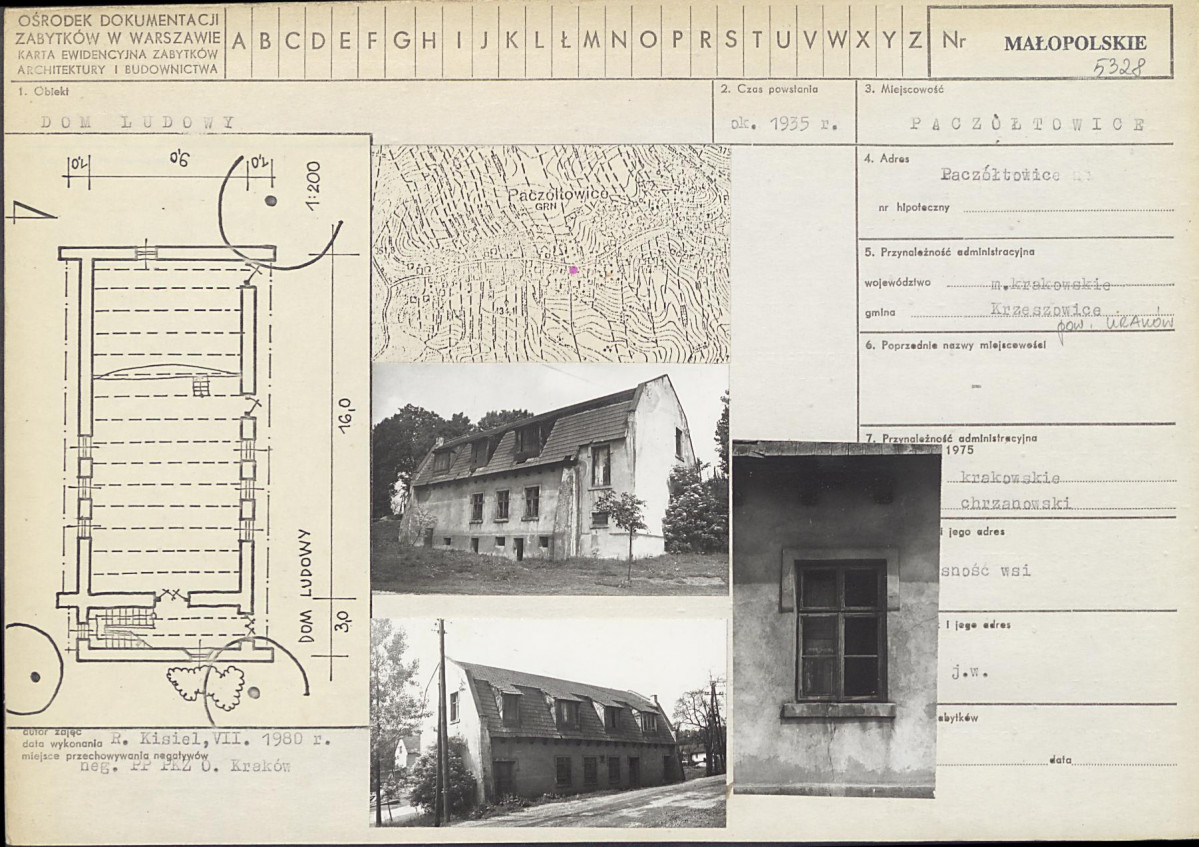 OŚRODEK DOKUMENTACJI
ZABYTKÓW W WARSZAWIE
KARTA EWIDENCYJNA ZABYTKÓW
ARCHITEKTURY I BUDOWNICTWA
A B C D E F G H I J K L Ł M N O P R S T U V W X Y Z
Nr MAŁOPOLSKIE
5328
1. Obiekt
DOM LUDOWY
2. Czas powstania
ok. 1935 r.
3. Miejscowość
PACZÓŁTOWICE
4. Adres
Paczółtowice
nr hipoteczny
5. Przynależność administracyjna
województwo m.krakowskie
gmina Krzeszowice
pow. KRAKÓW
6. Poprzednie nazwy miejscowości
-
7. Przynależność administracyjna
1975
krakowskie
chrzanowski
i jego adres
sność wsi
i jego adres
j.w.
abytków
data
1,0
9,0
1,0
1:200
16,0
3,0
DOM LUDOWY
Paczółtowice
GRN
autor zdjęć
data wykonania R. Kisiel, VII. 1980 r.
miejsce przechowywania negatywów
neg. PP PKZ O. Kraków